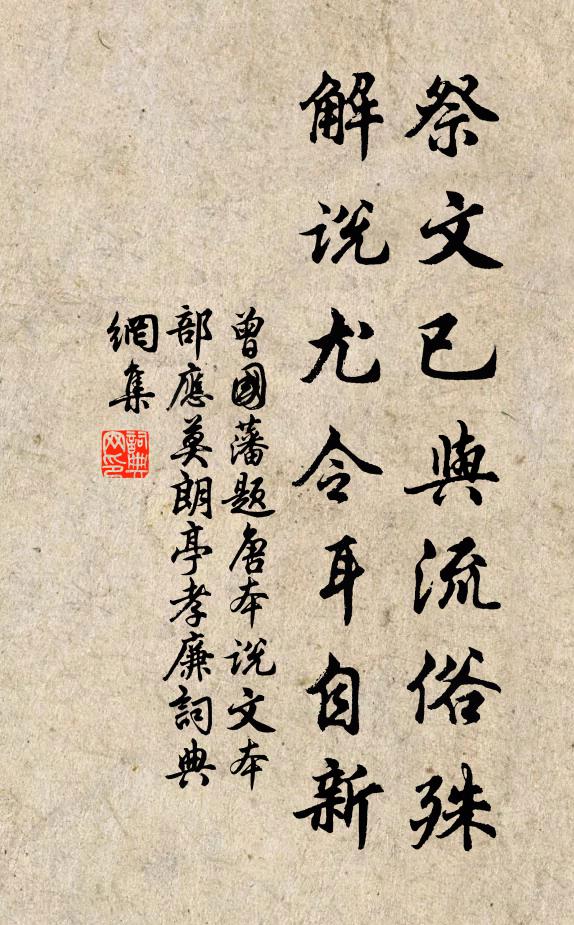 祭文已與流俗殊
解说尤令耳目新
曾國藩题唐本说文本
部應莫朗亭孝廉詞典
網集
詞典
网印